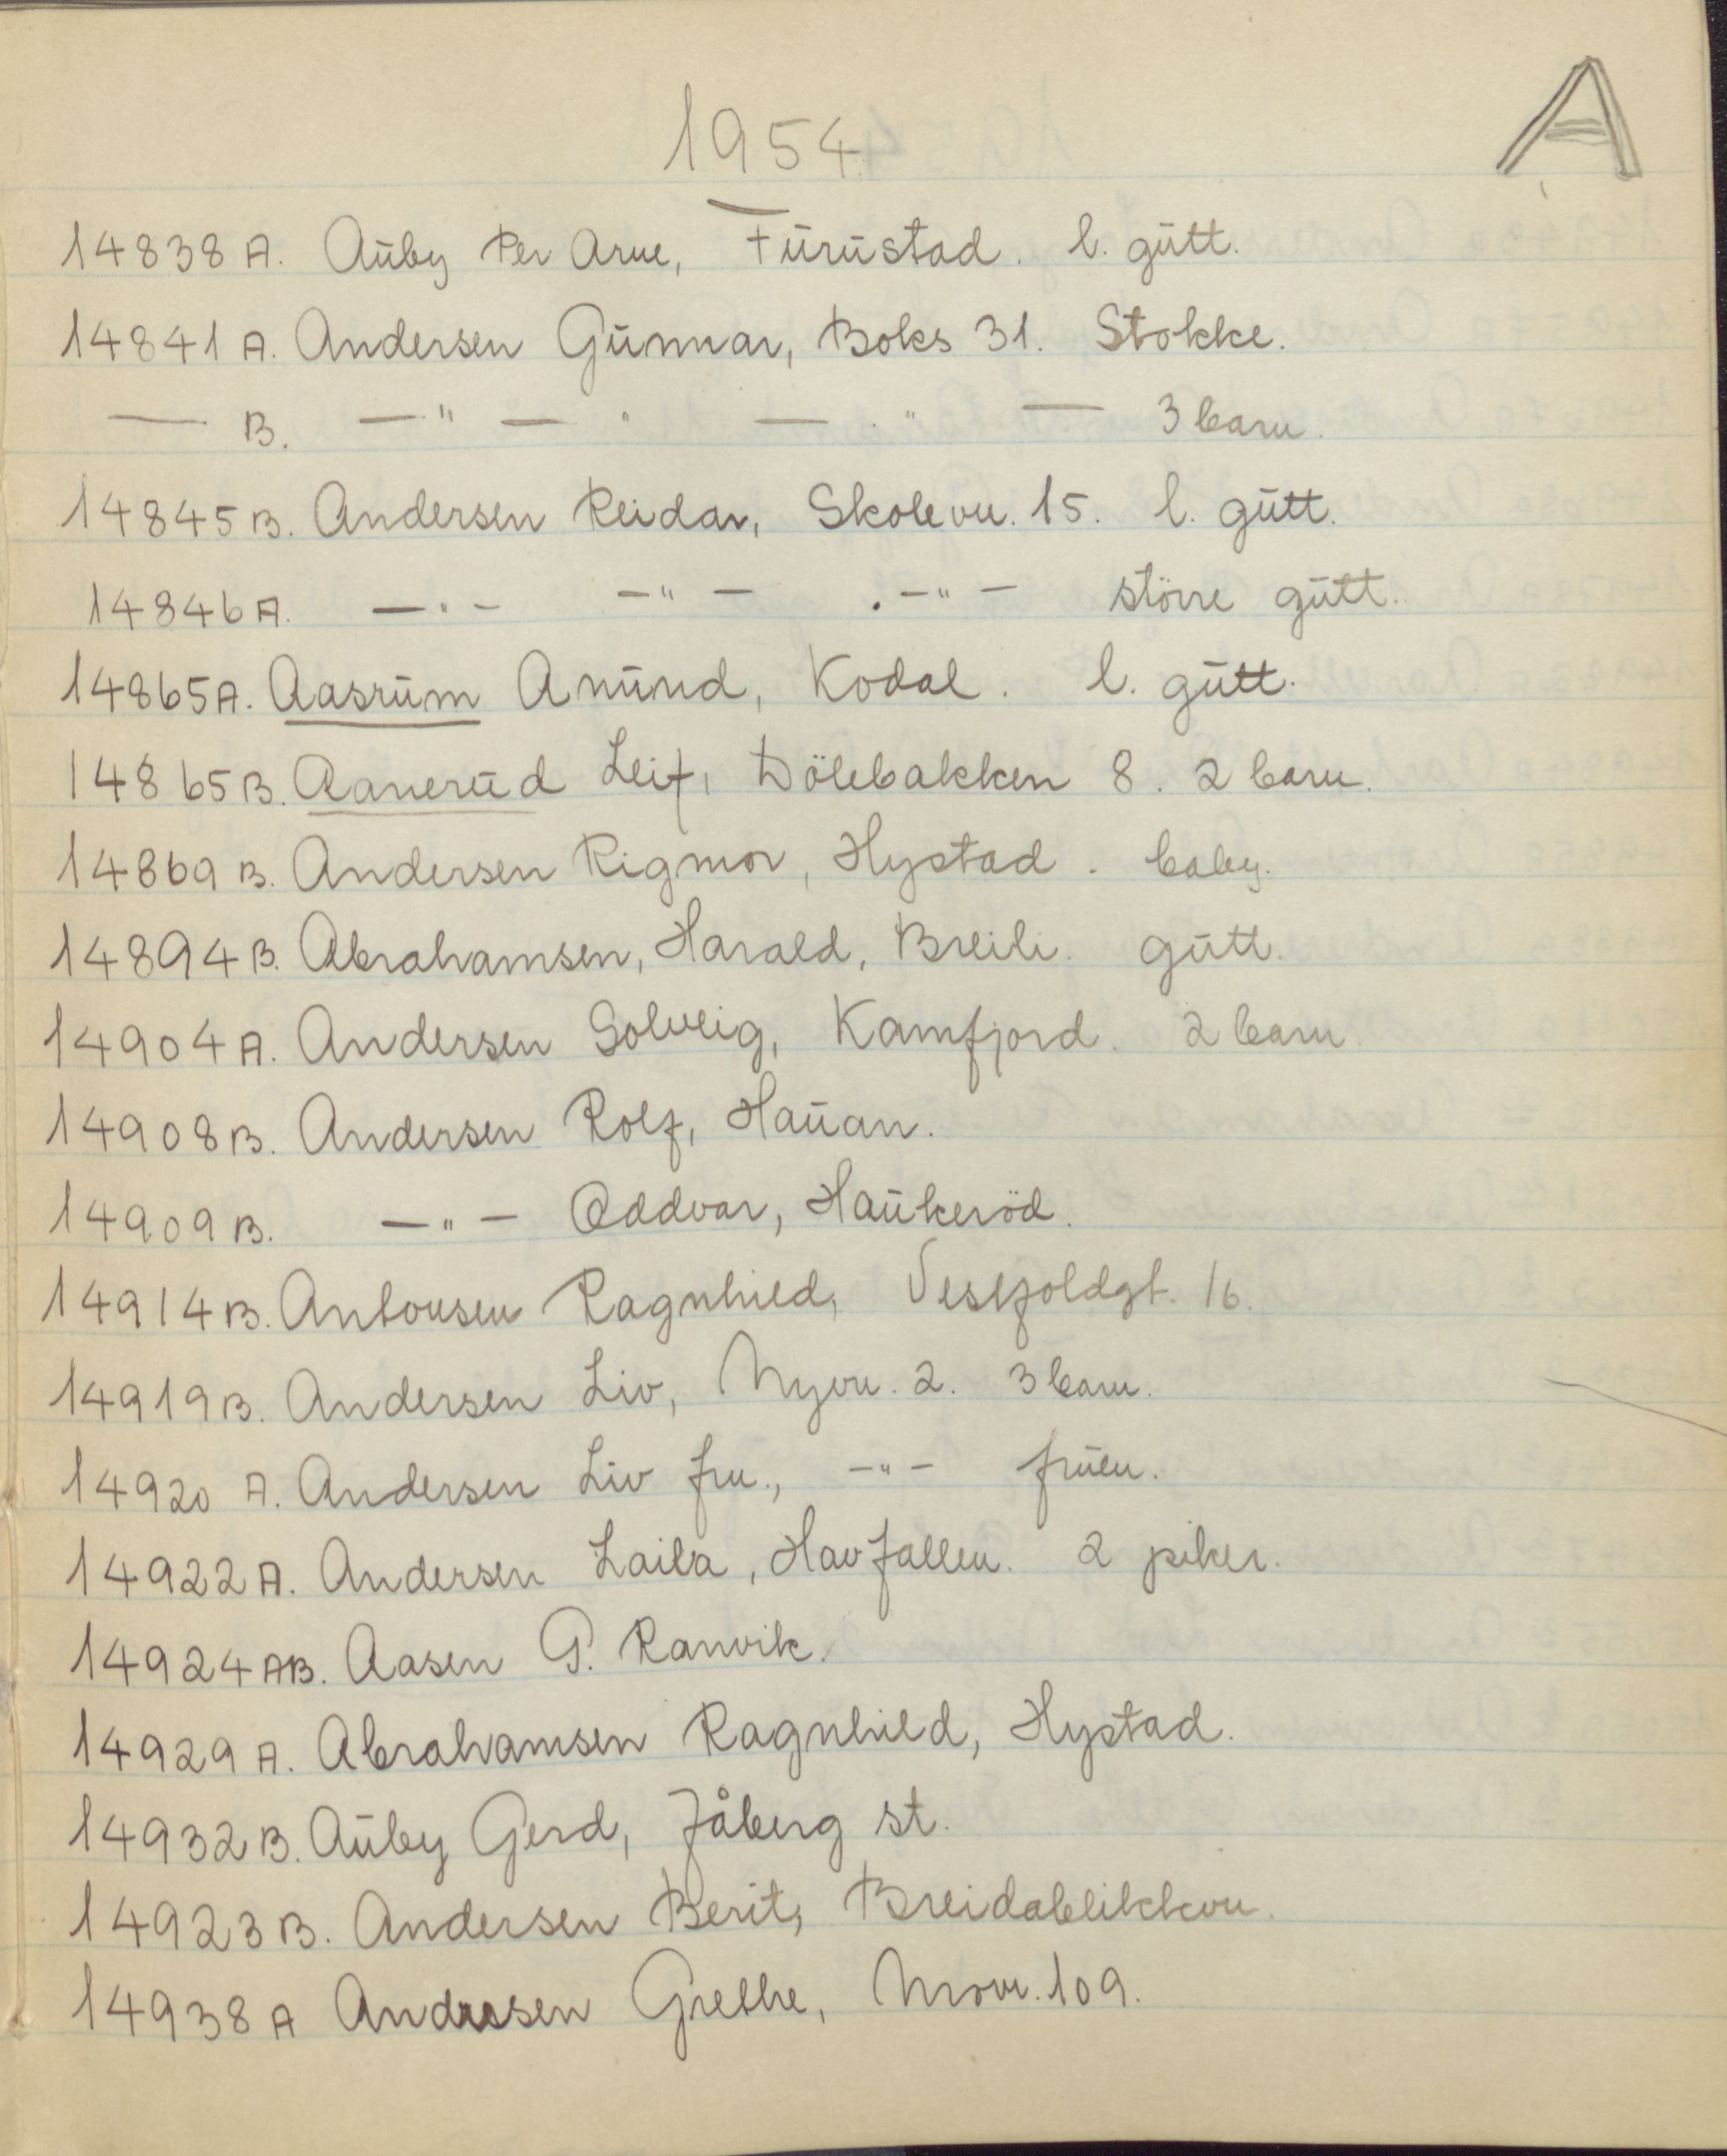 A
1954
14838 A. Auby Per Arne, Furustad. l. gutt.
14841 A. Andersen Gunnar, Boks 31. Stokke.
— B. — " — " — " — 3 barn.
14845 B. Andersen Reidar, Skolevn. 15. l. gutt.
14846 A. — " — — " — . — " — större gutt.
14865 A. Aasrum Anund, Kodal. l. gutt.
14865 B. Aanerud Leif, Dölebakken 8. 2 barn.
14869 B. Andersen Rigmor, Hystad. baby.
14894 B. Abrahamsen, Harald, Breili. gutt.
14904 A. Andersen Solveig, Kamfjord. 2 barn
14908 B. Andersen Rolf, Hauan.
14909 B. — " — Oddvar, Haukeröd.
14914 B. Antonsen Ragnhild, Vestfoldgt. 16.
14919 B. Andersen Liv, Nyvn. 2. 3 barn.
14920 A. Andersen Liv fru., — " — fruen.
14922 A. Andersen Laila, Havfallen. 2 piker.
14924 AB. Aasen G. Ranvik.
14929 A. Abrahamsen Ragnhild, Hystad.
14932 B. Auby Gerd, Jåberg st.
14923 B. Andersen Berit, Breidablikkvn.
14938 A Andersen Grethe, Movn. 109.